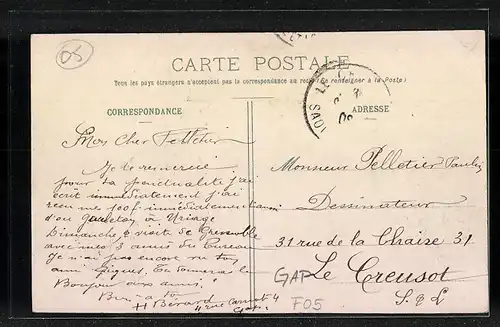 05
CARTE POSTALE
Tous les pays étrangers n'acceptent pas la correspondance au recto (Se renseigner à la Poste)
CORRESPONDANCE
ADRESSE
LE
SAO
Mon cher Pelletier
Je te remercie
pour ta ponctualité j'ai
écrit immédiatement j'ai
reçu mes 100f immédiatement
à Uriage
Dimanche, visite de Grenoble
avec mes 3 amis du bureau
Je n'ai pas encore vu ton
ami Gigues. Tu donneras le
Bonjour aux amis.
Bien à toi
H Bérard
4 rue Carnot 4
Gap.
Monsieur Pelletier Paulin
Dessinateur
31 rue de la Chaise 31
Le Creusot
S. & L
GAP
F05